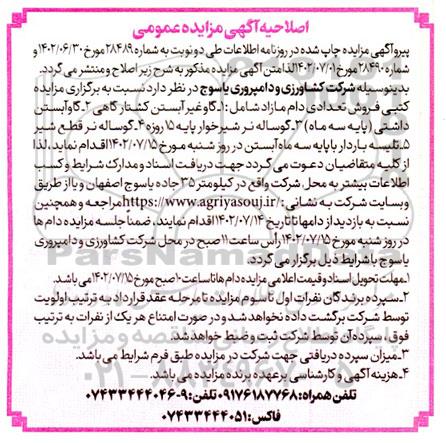 اصلاحیه آگهی مزایده عمومی
پیرو آگهی مزایده چاپ شده در روزنامه اطلاعات طی دو نوبت به شماره ۲۸۴۸۹ مورخ ۱۴۰۲/۰۶/۳۰ و
شماره ۲۸۴۹۰ مورخ ۱۴۰۲/۰۷/۰۱ لذا متن آگهی مزایده مذکور به شرح زیر اصلاح و منتشر می گردد.
بدینوسیله شرکت کشاورزی و دامپروری یاسوج در نظر دارد نسبت به برگزاری مزایده
کتبی فروش تعدادی دام مازاد شامل: ۱-گاو غیر آبستن کشتار گاهی ۲-گاو آبستن
داشتی (پایه سه ماه) ۳-گوساله نر شیرخوار پایه ۱۵ روزه ۴-گوساله نر قطع شیر
۵-تلیسه باردار با پایه سه ماه آبستن در روز شنبه مورخ ۱۴۰۲/۰۷/۱۵ اقدام نماید، لذا
از کلیه متقاضیان دعوت می گردد جهت دریافت اسناد و مدارک شرایط و کسب
اطلاعات بیشتر به محل شرکت واقع در کیلومتر ۳۵ جاده یاسوج اصفهان و یا از طریق
وبسایت شرکت به نشانی: https://www.agriyasouj.ir/ مراجعه و همچنین
نسبت به بازدید از دامها تا تاریخ ۱۴۰۲/۰۷/۱۴ اقدام نمایند، ضمناً جلسه مزایده دام ها
در روز شنبه مورخ ۱۴۰۲/۰۷/۱۵ رأس ساعت ۱۱ صبح در محل شرکت کشاورزی و دامپروری
یاسوج با شرایط ذیل برگزار می گردد.
۱-مهلت تحویل اسناد و قیمت اعلامی مزایده دام ها تا ساعت ۱۰ صبح مورخ ۱۴۰۲/۰۷/۱۵ می باشد.
۲-سپرده برندگان نفرات اول تا سوم مزایده تا مرحله عقد قرارداد به ترتیب اولویت
توسط شرکت برگشت داده نخواهد شد و در صورت امتناع هر یک از نفرات به ترتیب
فوق، سپرده آن توسط شرکت ثبت و ضبط خواهد شد.
۳-میزان سپرده دریافتی جهت شرکت در مزایده طبق فرم شرایط می باشد.
۴-هزینه آگهی و کارشناسی بر عهده برنده مزایده می باشد.
تلفن همراه: ۰۹۱۷۶۱۸۷۷۶۸ تلفن: ۹-۰۷۴۳۳۴۴۴۰۴۶
فاکس: ۰۷۴۳۳۴۴۴۰۵۱